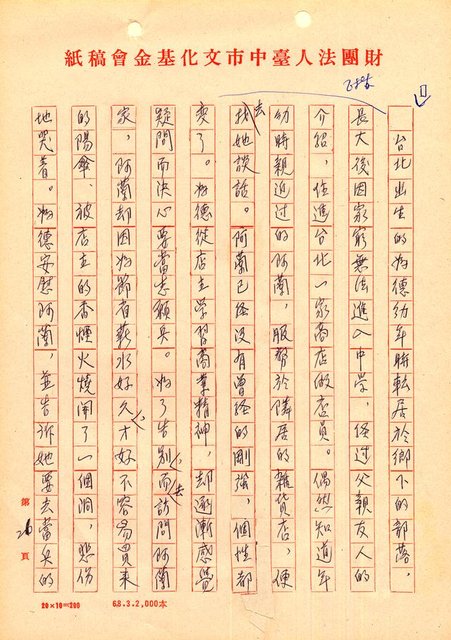 財團法人臺中市文化基金會稿紙
台北出生的德幼年時転居於鄉下的部落，
長大後因家窮無法進入中學，經过父親友人的
介紹，住進台北一家商店做店員。偶然知道年
幼時親近过的阿蘭，服務於隣居的雜貨店，便
去找她談話。阿蘭已経沒有曾経的剛強，個性都
変了。德從店主学習商業精神，却逐漸感覺
疑問而決心要當志願兵。为了告別而去訪問阿蘭
家，阿蘭却因为節省薪水好久才好不容易買来
的陽傘，被店主的香煙火燒開了一個洞，悲伤
地哭着。德安慰阿蘭，並告訴她要去當兵的
第26頁
20×10=200
68.3.2,000本